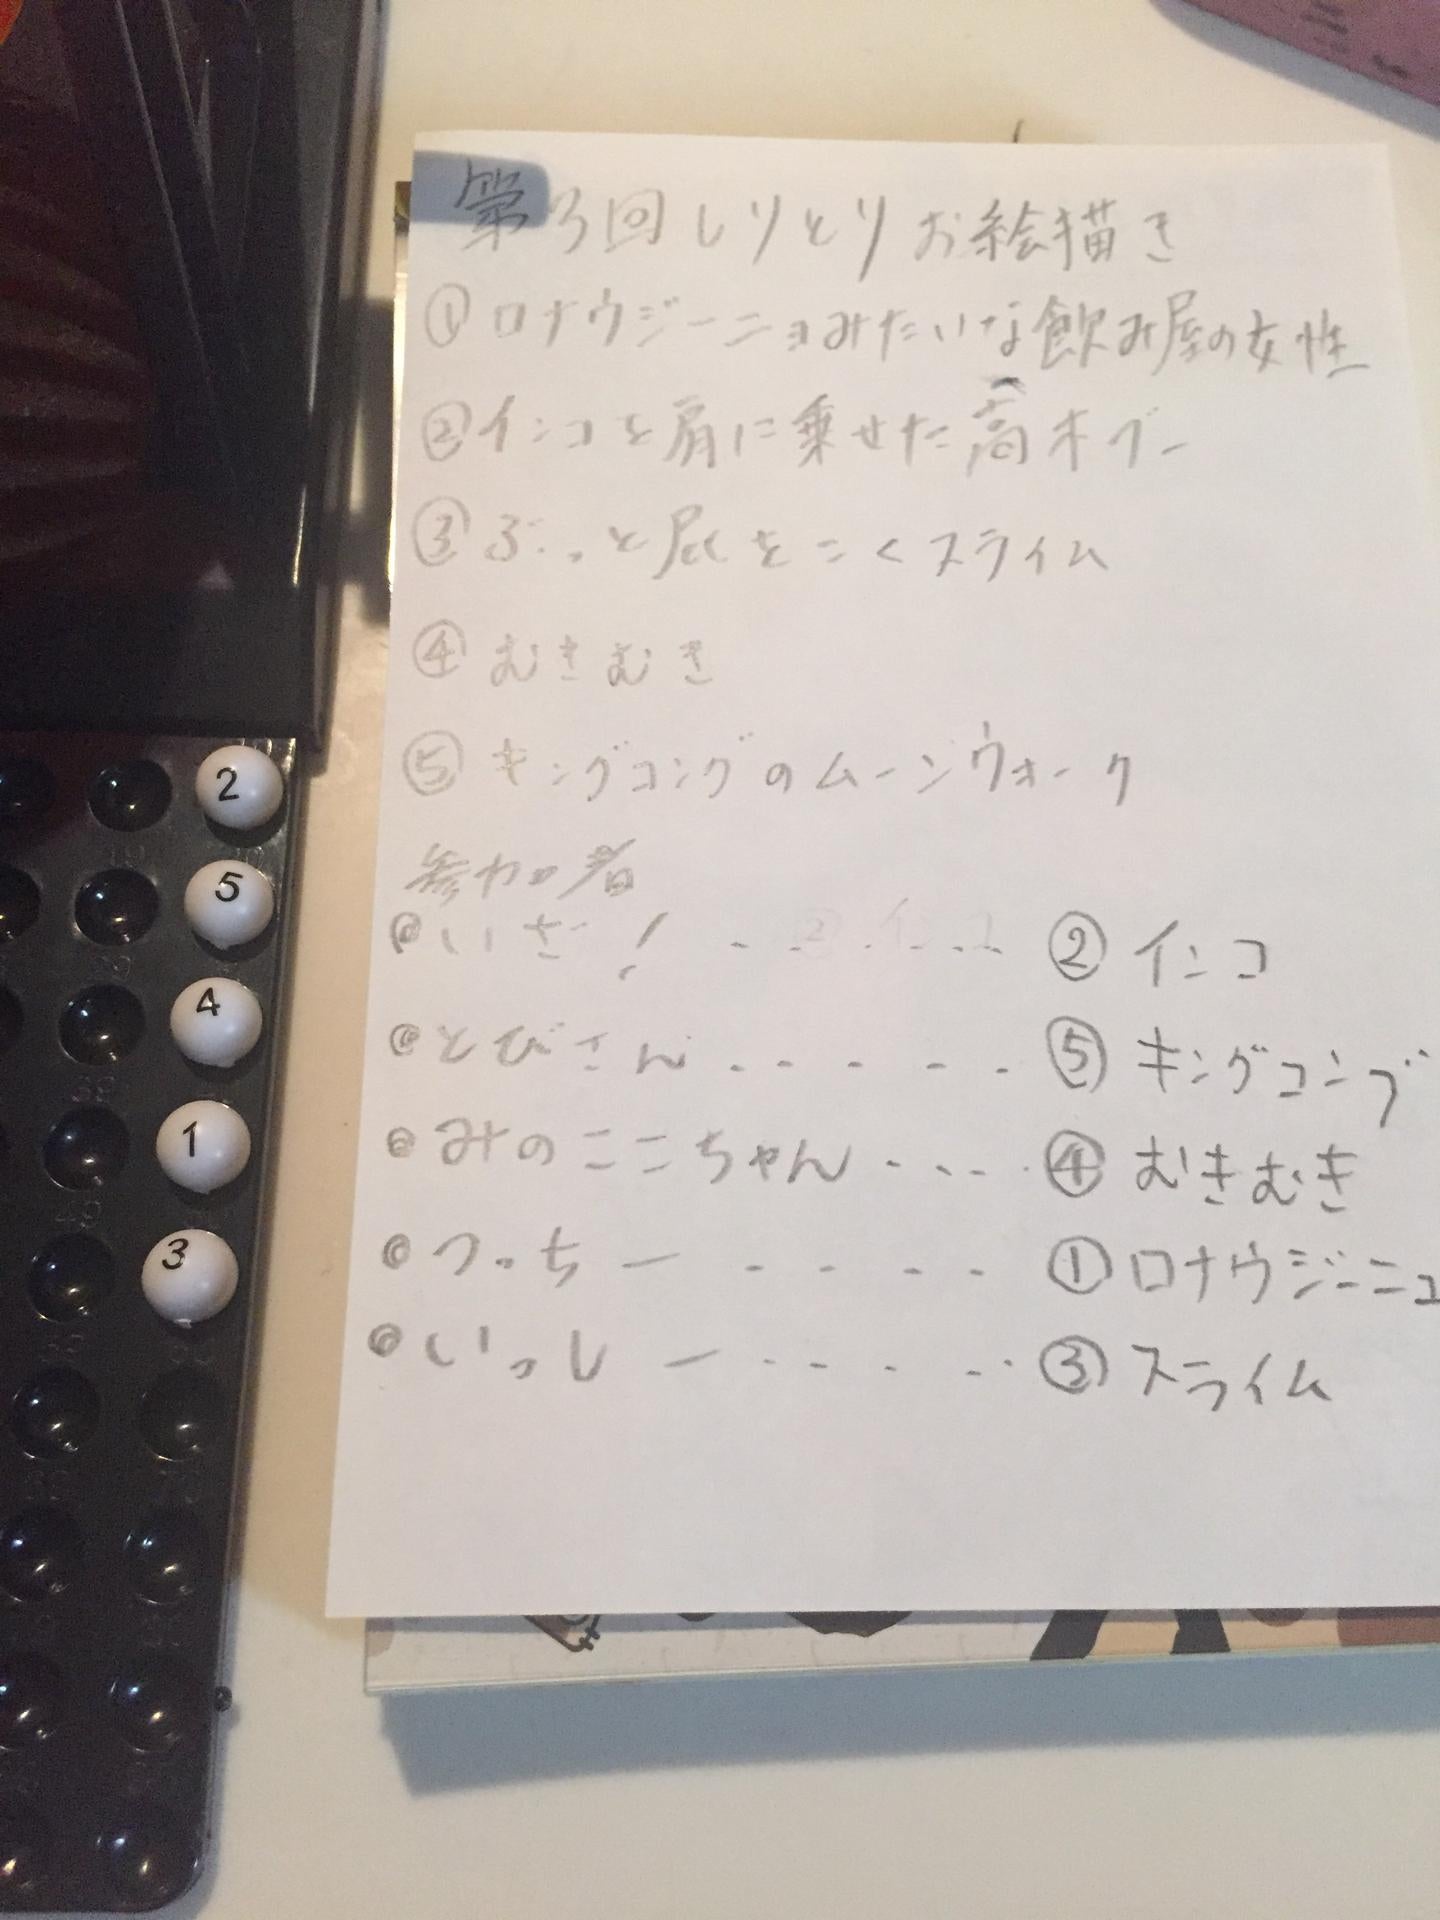 第3回しりとりお絵描き
①ロナウジーニョみたいな飲み屋の女性
②インコを肩に乗せた高木ブー
③ぶっと屁をこくスライム
④むきむき
⑤キングコングのムーンウォーク
参加者
いざ! ②インコ
とびさん ⑤キングコング
みのここちゃん ④むきむき
つっちー ①ロナウジーニョ
いっしー ③スライム
2
5
4
1
3